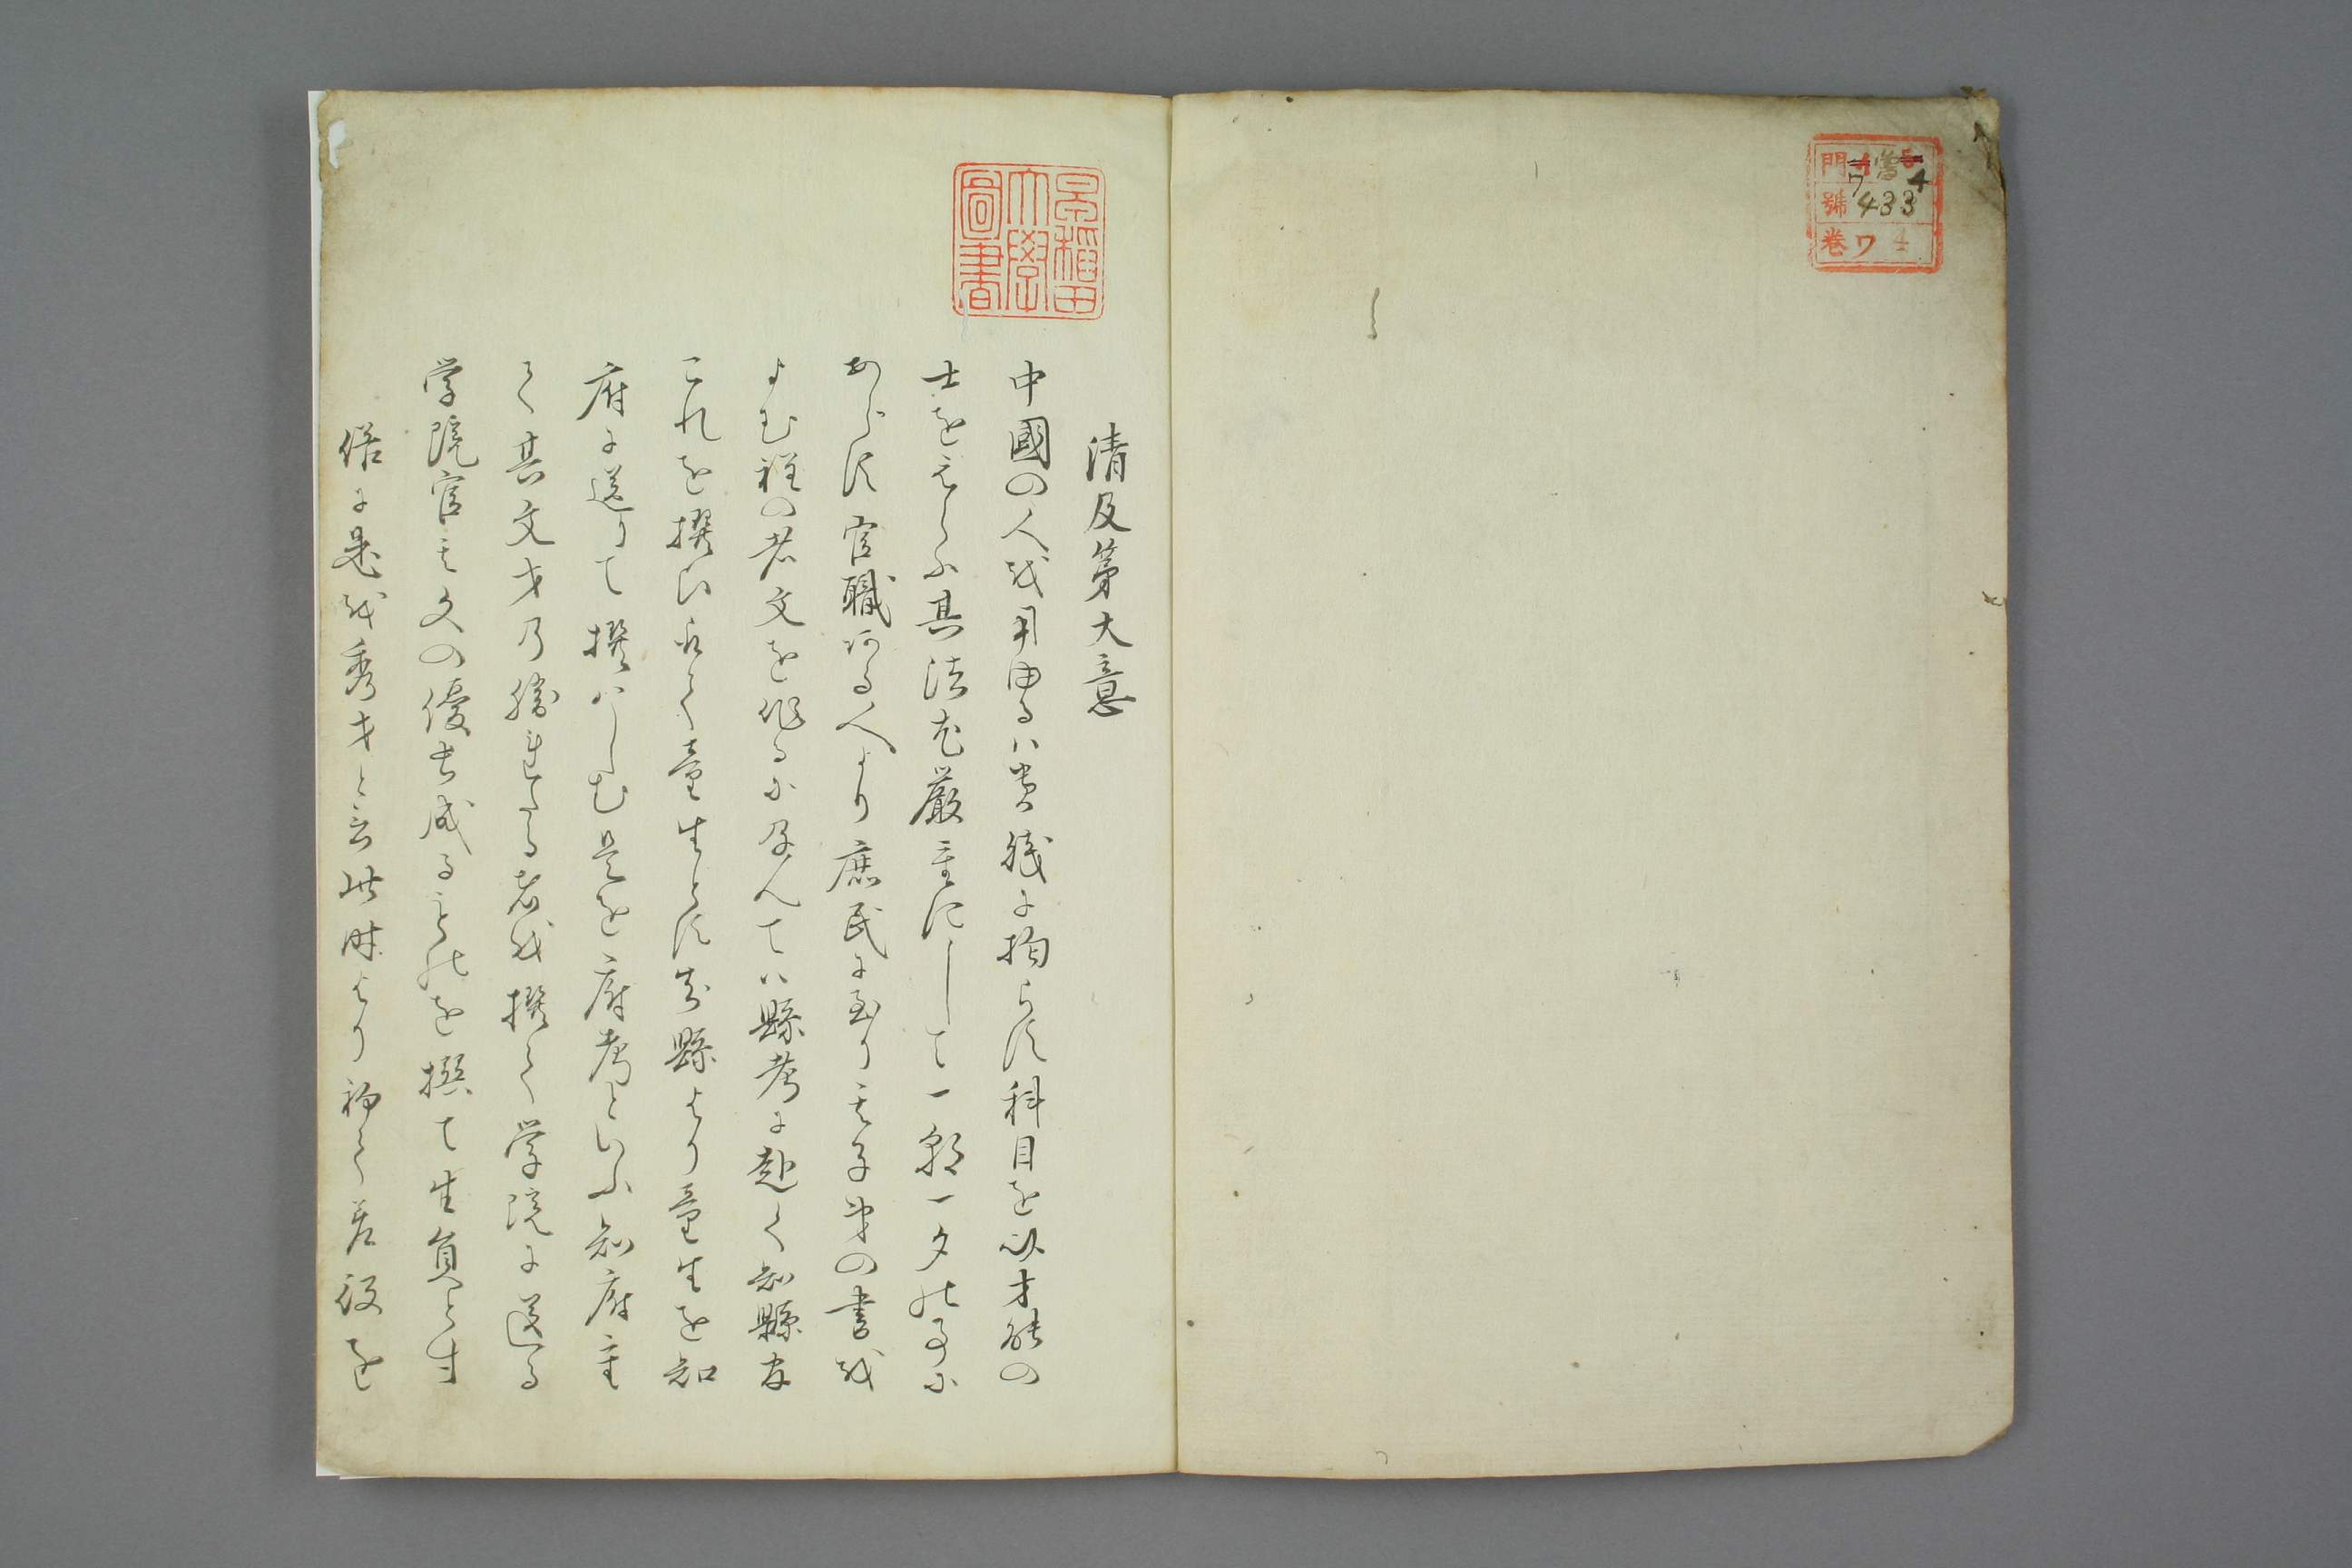 門 ワ 4
號 433
卷 ワ 4
早稲田
大學
圖書
清及第大意
中國の人を用ゆるハ貴賤に拘らす科目を以才能の
士をえらふ其法尤厳重にして一朝一夕の事に
あらす官職ある人より庶民に至り其子弟の書を
よむ程の者文を作るに及んてハ縣考に赴く知縣官
これを撰ひ取て童生とす知縣より童生を知
府に送りて撰ハしむ是を府考といふ知府重
て其文才乃勝れたる者を撰て学院に送る
学院官其文の優長成るものを撰て生員とす
俗に是を秀才と云此時より初て差役を